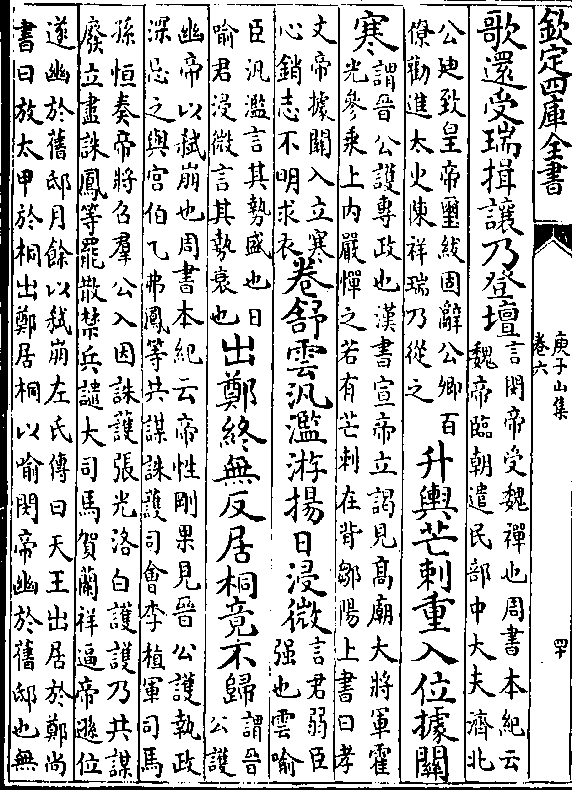 欽定四庫全書
庚子山集
卷六
歌還受瑞揖讓乃登壇
言閔帝受魏禪也周書本紀云
魏帝臨朝遣民部中大夫濟北
公廸致皇帝璽紱固辭公卿百
僚勸進太史陳祥瑞乃從之
升輿芒刺重入位據關
寒
謂晉公護專政也漢書宣帝立謁見高廟大將軍霍
光參乘上内嚴憚之若有芒刺在背鄒陽上書曰孝
文帝據關入立寒
心銷志不明求衣
卷舒雲汎濫游揚日浸微
言君弱臣
强也雲喻
臣汎濫言其勢盛也日
喻君浸微言其勢衰也
出鄭終無反居桐竟不歸
謂晉
公護
幽帝以弑崩也周書本紀云帝性剛果見晉公護執政
深忌之與宫伯乙弗鳳等共謀誅護司會李植軍司馬
孫恒奏帝將召羣公入因誅護張光洛白護護乃共謀
廢立盡誅鳳等罷散禁兵譴大司馬賀蘭祥逼帝遜位
遂幽於舊邸月餘以弑崩左氏傳曰天王出居於鄭尚
書曰放太甲於桐出鄭居桐以喻閔帝幽於舊邸也無